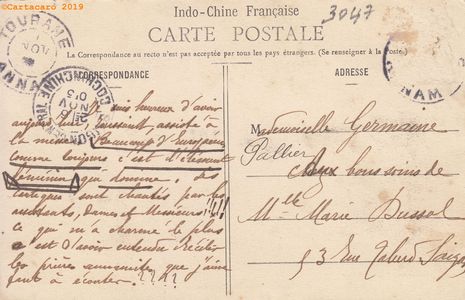 © Cartacaro 2019
Indo-Chine Française
3047
CARTE POSTALE
La Correspondance au recto n'est pas acceptée par tous les pays étrangers. (Se renseigner à la Poste.)
CORRESPONDANCE
ADRESSE
TOURANE
ANNAM
COCHINCHINE
NOV
ANNAM
suis heureux d'avoir
aujourd'hui assisté à
la messe Beaucoup d'Européens
comme toujours c'est l'élément
féminin qui domine. Les
cantiques sont chantés par les
assistants, Dames et Messieurs !!!!
ce qui m'a charmé le plus
c'est d'avoir entendu réciter
les prières annamites que j'aime
tant à écouter. ????
Mademoiselle Germaine
Pallier
Aux bons soins de
Mlle Marie Dussol
53 rue Taberd Saigon